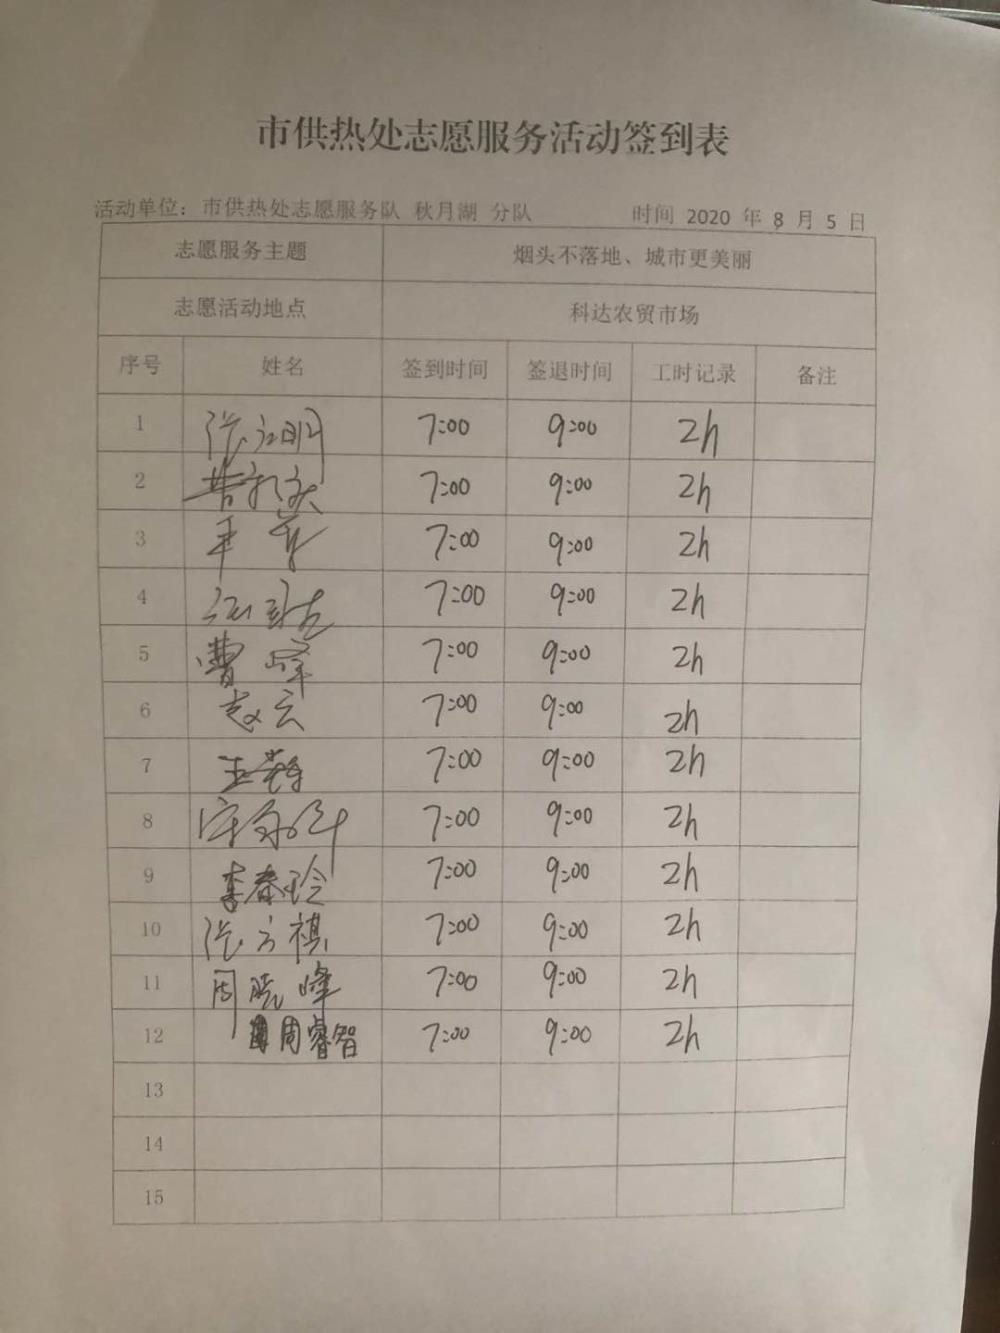 市供热处志愿服务活动签到表
活动单位：市供热处志愿服务队 秋月湖 分队 时间 2020 年 8 月 5 日
志愿服务主题 烟头不落地、城市更美丽
志愿活动地点 科达农贸市场
序号 姓名 签到时间 签退时间 工时记录 备注
1 7:00 9:00 2h
2 7:00 9:00 2h
3 7:00 9:00 2h
4 7:00 9:00 2h
5 曹峰 7:00 9:00 2h
6 赵云 7:00 9:00 2h
7 7:00 9:00 2h
8 7:00 9:00 2h
9 李春玲 7:00 9:00 2h
10 张方祺 7:00 9:00 2h
11 周晓峰 7:00 9:00 2h
12 周睿智 7:00 9:00 2h
13
14
15